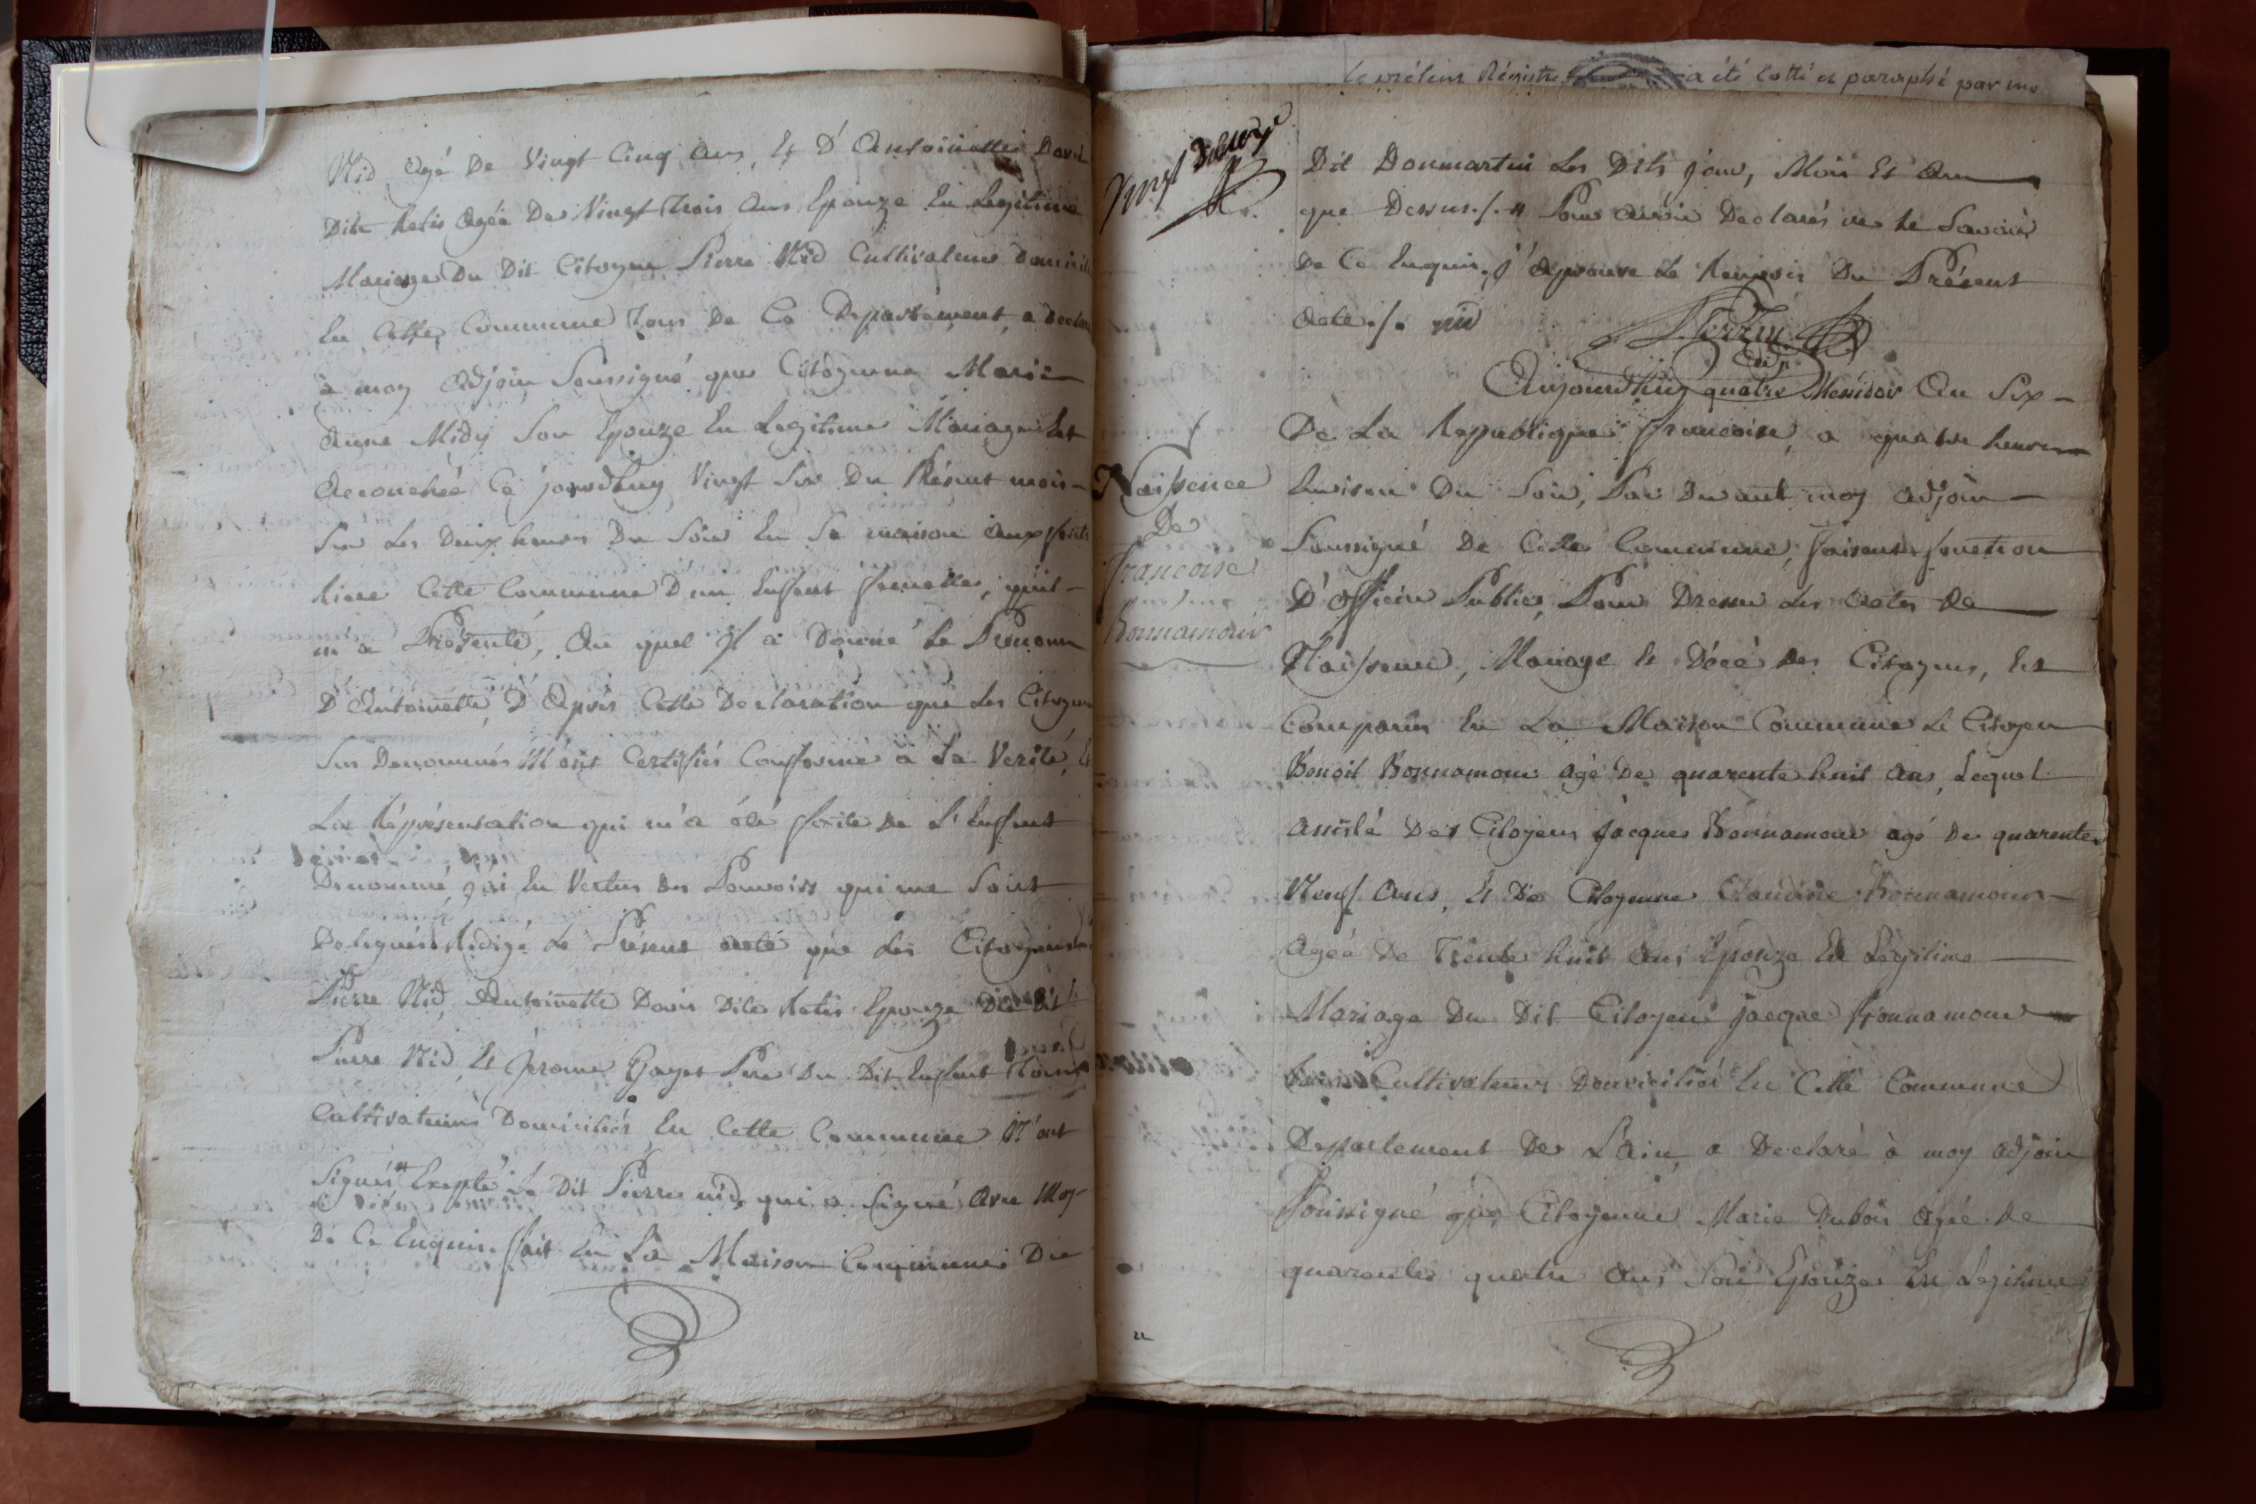 Nid agé De Vingt Cinq ans, Et D'Antoinette Davis
Dite Retis Agée De Vingt Trois ans Epouze En Legitime
Mariage Du Dit Citoyen Pierre Nid Cultivateur Domicilié
En Cette Commune Tous De Ce Departement, a Declaré
à moy Adjoin Soussigné que Citoyenne Marie
Anne Midy Son Epouze En Legitime Mariage Est
Accouchée Ce jourd'huy Vingt Six Du Présent mois
Sur Les Deux heures Du Soir En Sa maison aux
Riere Cette Commune D'un Enfant femelle, qu'il
m'a Présenté, Au quel Il a Donné Le Prenom
D'Antoinette, D'Après Cette Declaration que Les Citoyens
Sus Denommés M'ont Certifiés Conforme à La Verité, Et
La Réprésentation qui m'a été faite De L'Enfant
Denommé, j'ai En Vertus Des Pouvoirs qui me Sont
Delegués Rédigé Le Présent acte que Les Citoyens
Pierre Nid, Antoinette Davis Dite Retis Epouze Du Dit
Pierre Nid, Et Jerome Gayet Pere Du Dit Enfant Tous
Cultivateurs Domiciliés En Cette Commune N'ont
Signés Excepté Le Dit Pierre nid, qui a Signé Avec Moy
De Ce Enquis. fait En La Maison Commune Du
Le présent Régistre a été Cotté et paraphé par mo
Vingt
Dit Donmartin Les Dits jour, Mois Et An
que Dessus ./. # Pour avoir Declarés ne Le Savoir
De Ce Enquis, J'Aprouve Le Renvois Du Présent
Acte ./.
Perrin
adj.
Aujourd'huy quatre Messidor An Six
De La Republique francoise, a quatre heures
Environ Du Soir, Par Devant moy Adjoin
Soussigné De Cette Commune, faisant fonction
D'Officier Public, Pour Dresser Les Actes De
Naissence, Mariage Et Décé Des Citoyens, Est
Comparus En La Maison Commune Le Citoyen
Benoit Bonnamour agé De quarente huit ans, Lequel
assisté Des Citoyens Jacques Bonnamour agé De quarente
Neuf Ans, Et De Citoyenne Claudine Bonnamour
Agée De Trente huit Ans Epouze En Legitime
Mariage Du Dit Citoyen Jacque Bonnamour
Cultivateurs Domiciliés En Cette Commune
Departement De L'Ain, a Declaré à moy adjoin
Soussigné que Citoyenne Marie Dubois Agée De
quarente quatre Ans Son Epouze En Legitime
Naissence
De
francoise
Bonnamour